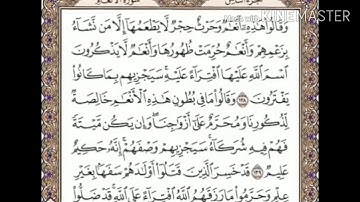 الجزء الثامن سورة الأنعام
Made with KINEMASTER
وَقَالُوا۟ هَٰذِهِۦٓ أَنْعَٰمٌ وَحَرْثٌ حِجْرٌ لَّا يَطْعَمُهَآ إِلَّا مَن نَّشَآءُ
بِزَعْمِهِمْ وَأَنْعَٰمٌ حُرِّمَتْ ظُهُورُهَا وَأَنْعَٰمٌ لَّا يَذْكُرُونَ
ٱسْمَ ٱللَّهِ عَلَيْهَا ٱفْتِرَآءً عَلَيْهِ سَيَجْزِيهِم بِمَا كَانُوا۟
يَفْتَرُونَ ١٣٨ وَقَالُوا۟ مَا فِى بُطُونِ هَٰذِهِ ٱلْأَنْعَٰمِ خَالِصَةٌ
لِّذُكُورِنَا وَمُحَرَّمٌ عَلَىٰٓ أَزْوَٰجِنَا وَإِن يَكُن مَّيْتَةً
فَهُمْ فِيهِ شُرَكَآءُ سَيَجْزِيهِمْ وَصْفَهُمْ إِنَّهُۥ حَكِيمٌ
عَلِيمٌ ١٣٩ قَدْ خَسِرَ ٱلَّذِينَ قَتَلُوٓا۟ أَوْلَٰدَهُمْ سَفَهًۢا بِغَيْرِ
عِلْمٍ وَحَرَّمُوا۟ مَا رَزَقَهُمُ ٱللَّهُ ٱفْتِرَآءً عَلَى ٱللَّهِ قَدْ ضَلُّوا۟